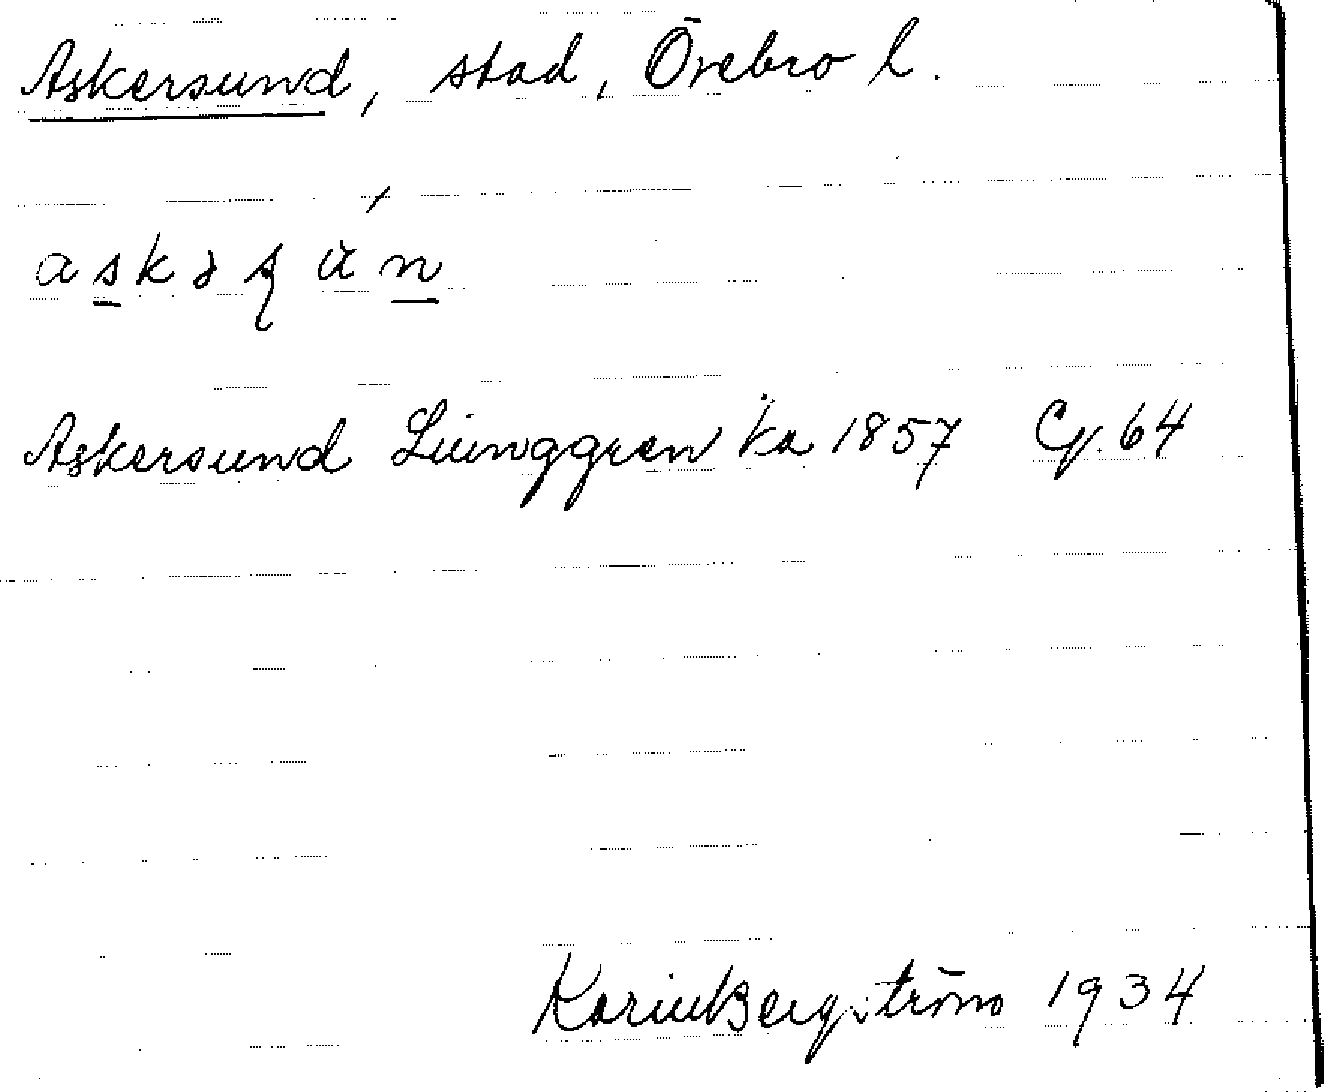 Askersund, stad, Örebro l.
askəʂu̇́n
Askersund Ljunggren ka 1857 Cg. 64
Karin Bergström 1934